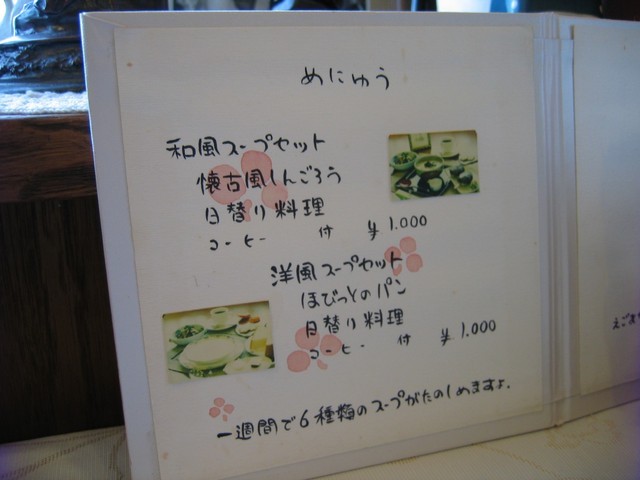 めにゅう
和風スープセット
懐古風しんごろう
日替り料理
コーヒー 付 ¥1.000
洋風スープセット
ほびっとのパン
日替り料理
コーヒー 付 ¥1.000
一週間で6種類のスープがたのしめますよ.